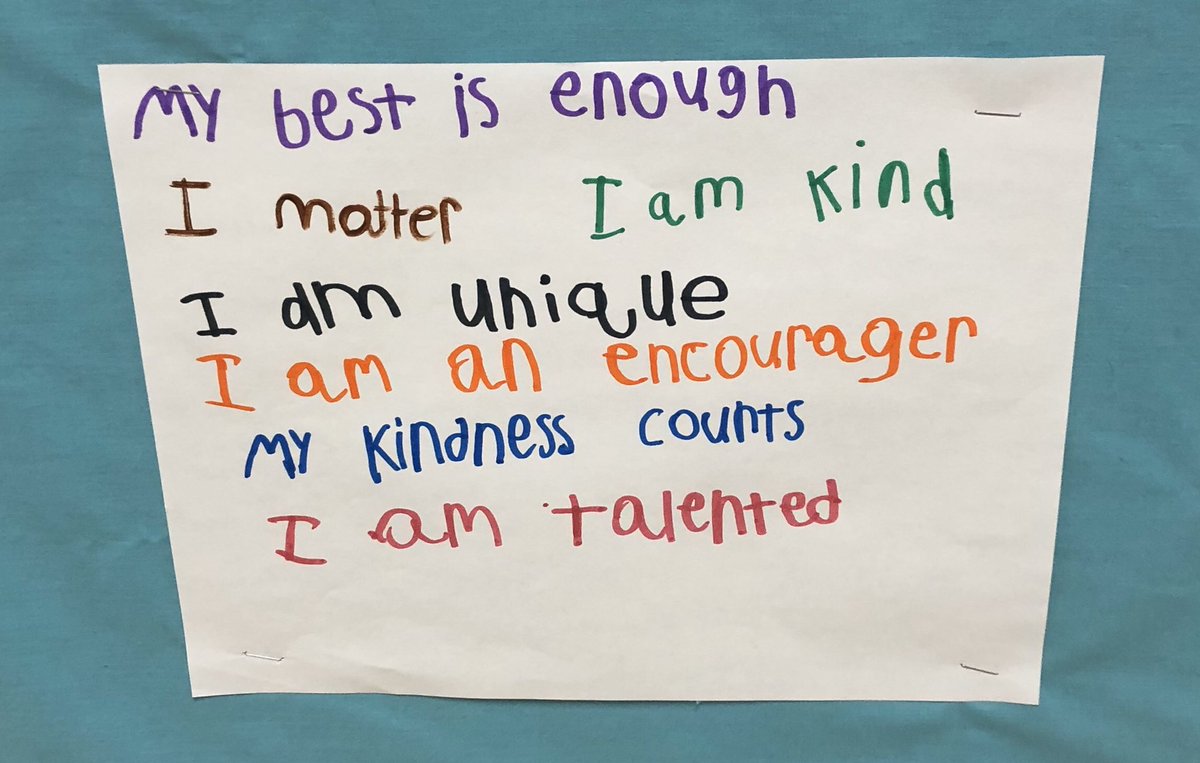 My best is enough
I matter I am kind
I am unique
I am an encourager
My kindness counts
I am talented